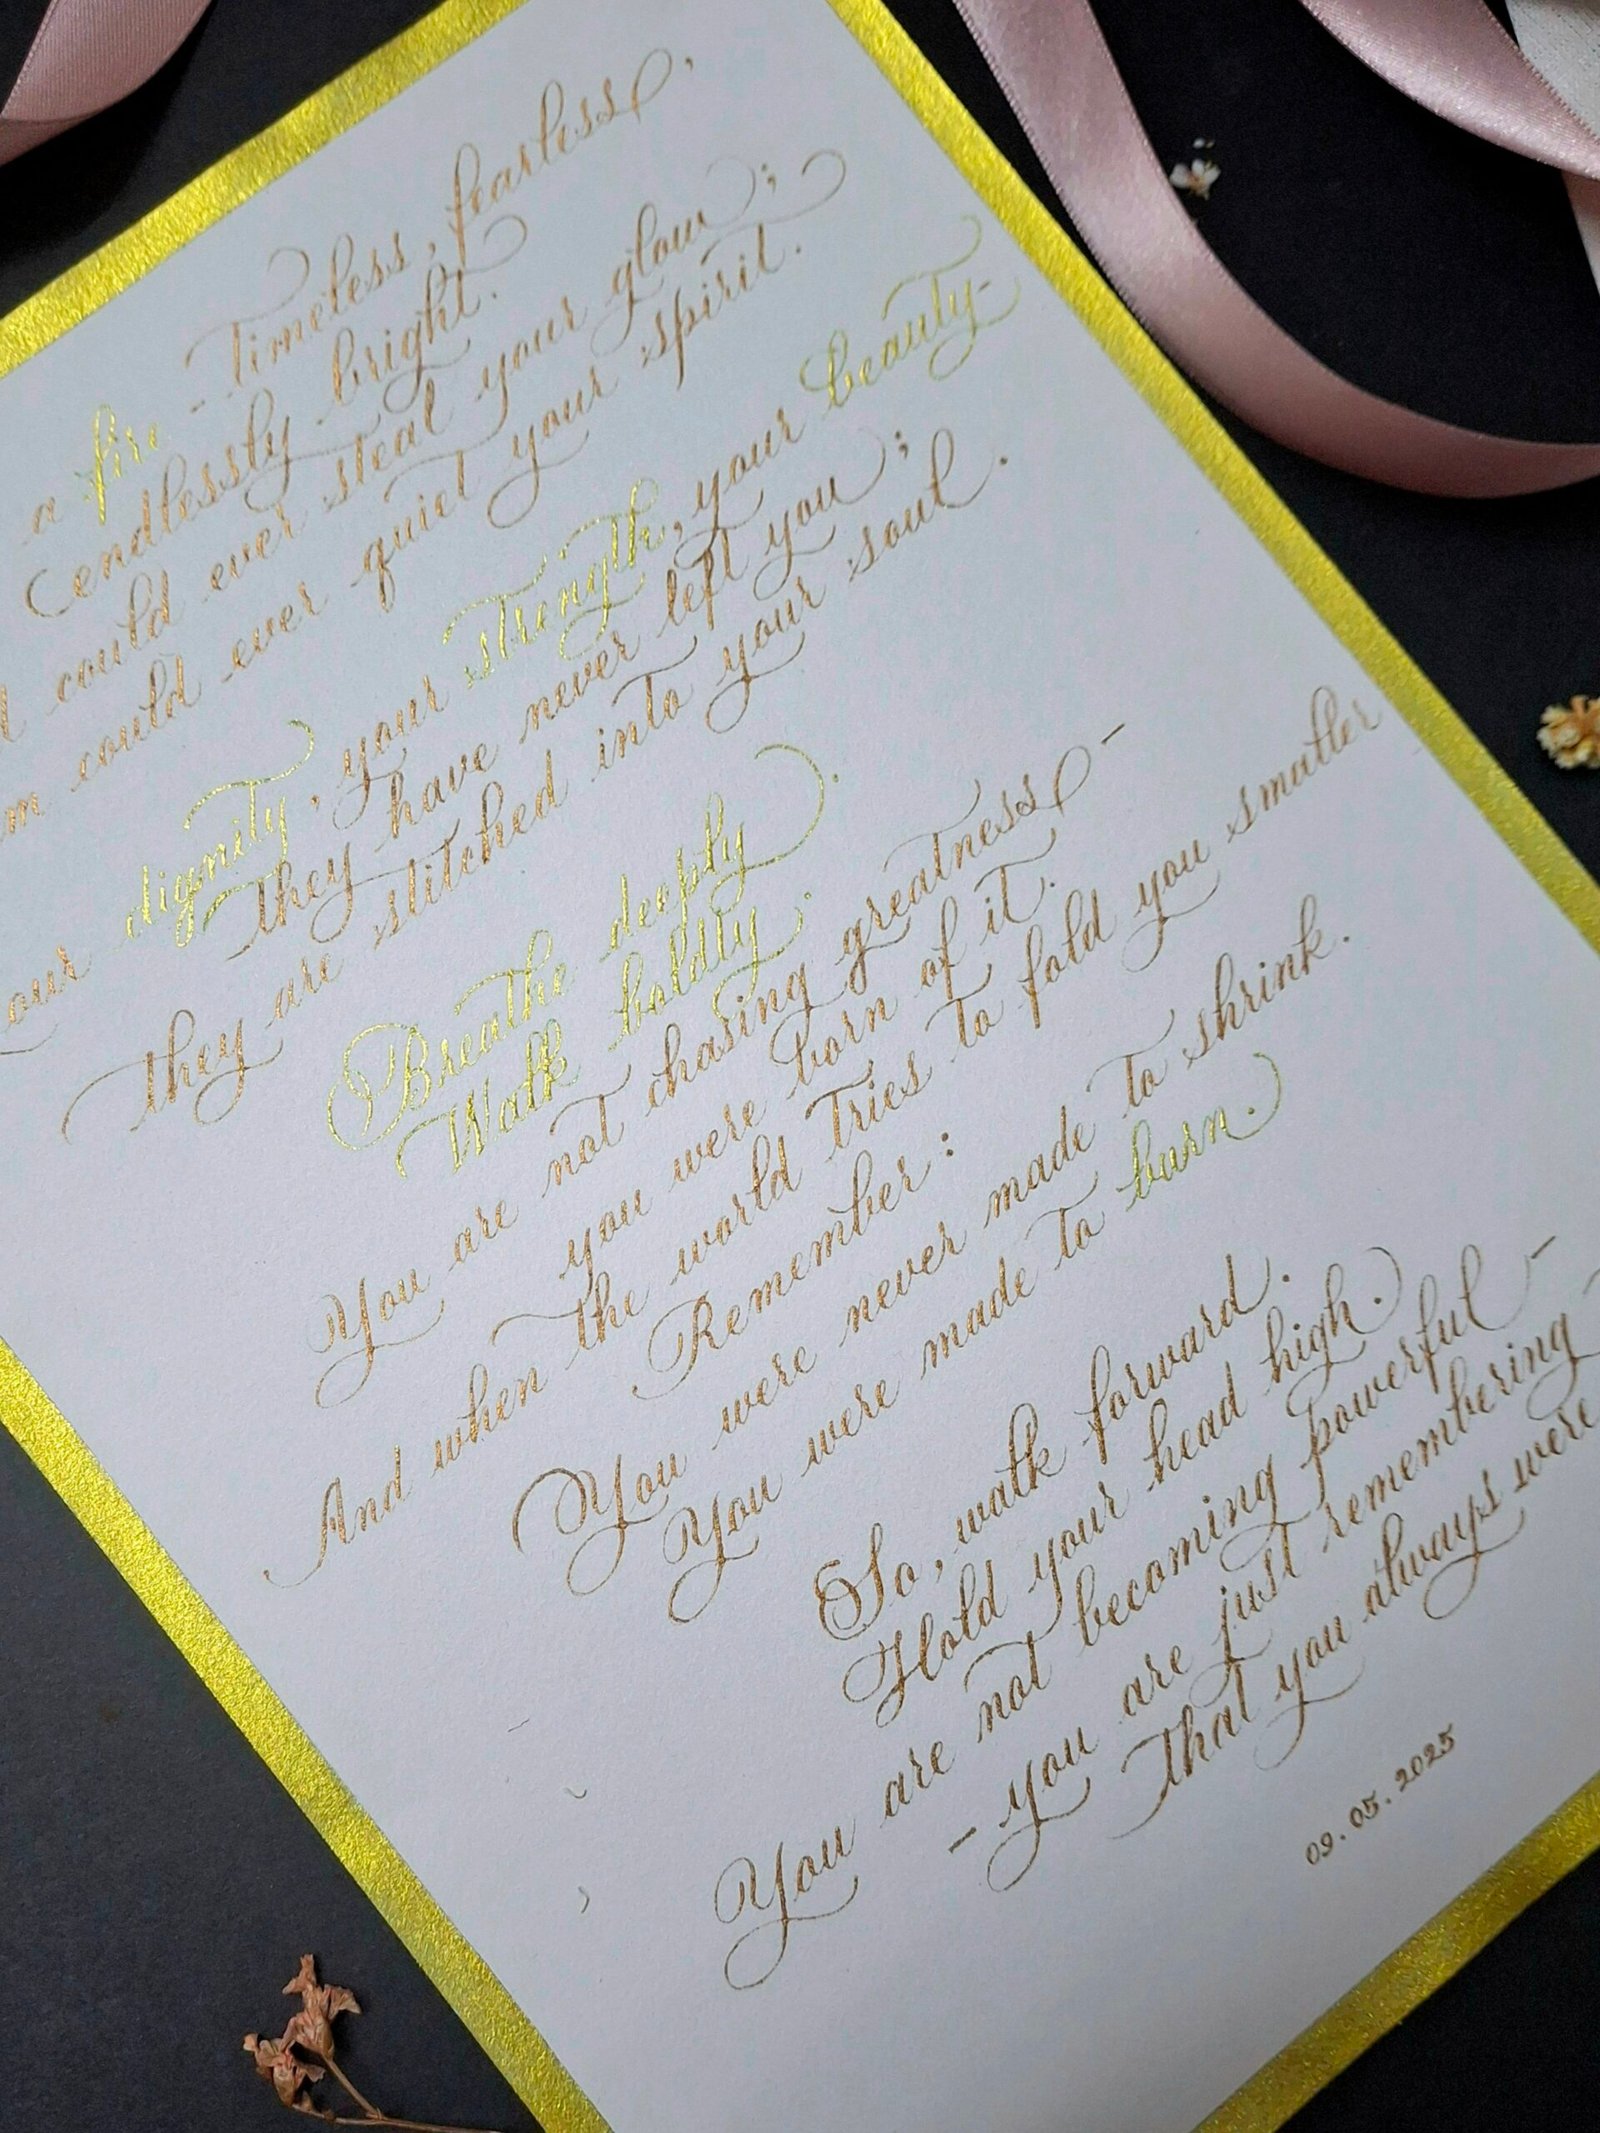 a fire - Timeless, fearless,
endlessly bright.
could ever steal your glow;
could ever quiet your spirit.
dignity, your strength, your beauty-
they have never left you;
they are stitched into your soul.
Breathe deeply.
Walk boldly.
You are not chasing greatness -
you were born of it.
And when the world tries to fold you smaller
Remember:
You were never made to shrink.
You were made to burn.
So, walk forward.
Hold your head high.
You are not becoming powerful -
- you are just remembering
That you always were
09.05.2025